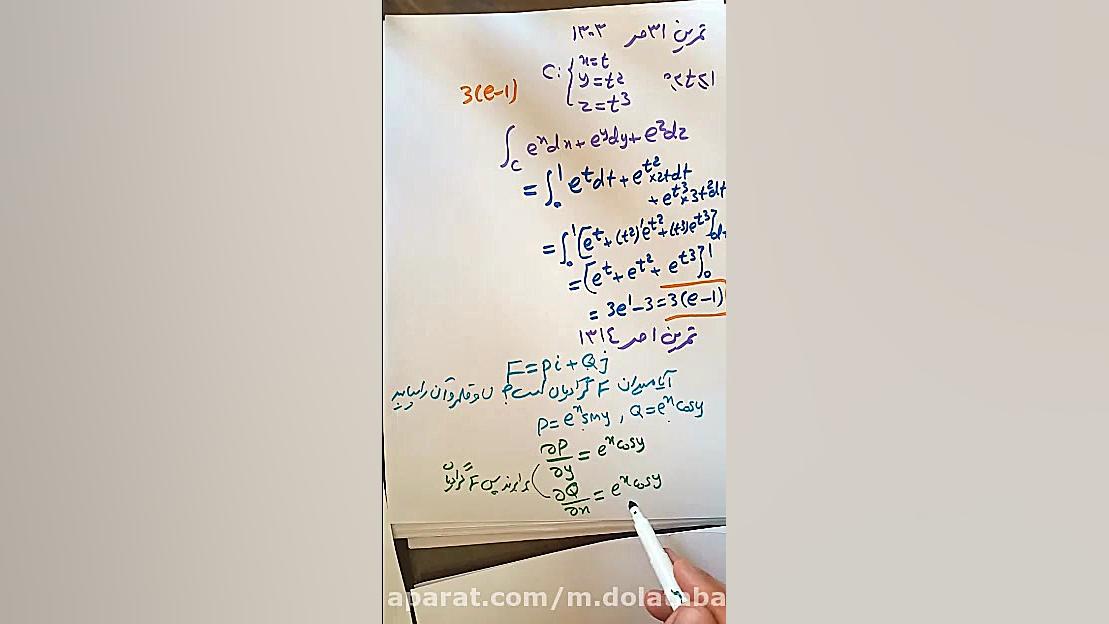 تمرین ۳۱ ص ۱۳۰۳
C: { x=t
y=t2
z=t3
0≤t≤1
3(e-1)
∫C exdx+eydy+ezdz
=∫01 etdt+et2×2tdt
+et3×3t2dt
=∫01[et+(t2)'et2+(t3)'et3]dt
=[et+et2+et3]01
= 3e1-3=3(e-1)
تمرین ۱ ص ۱۳۱۴
F=Pi+Qj
آیا میدان F گرادیان است؟ و آن را بیابید
P=exsiny , Q=excosy
∂P/∂y = excosy
∂Q/∂x = excosy
برابرند پس F گرادیان
aparat.com/m.dolataba